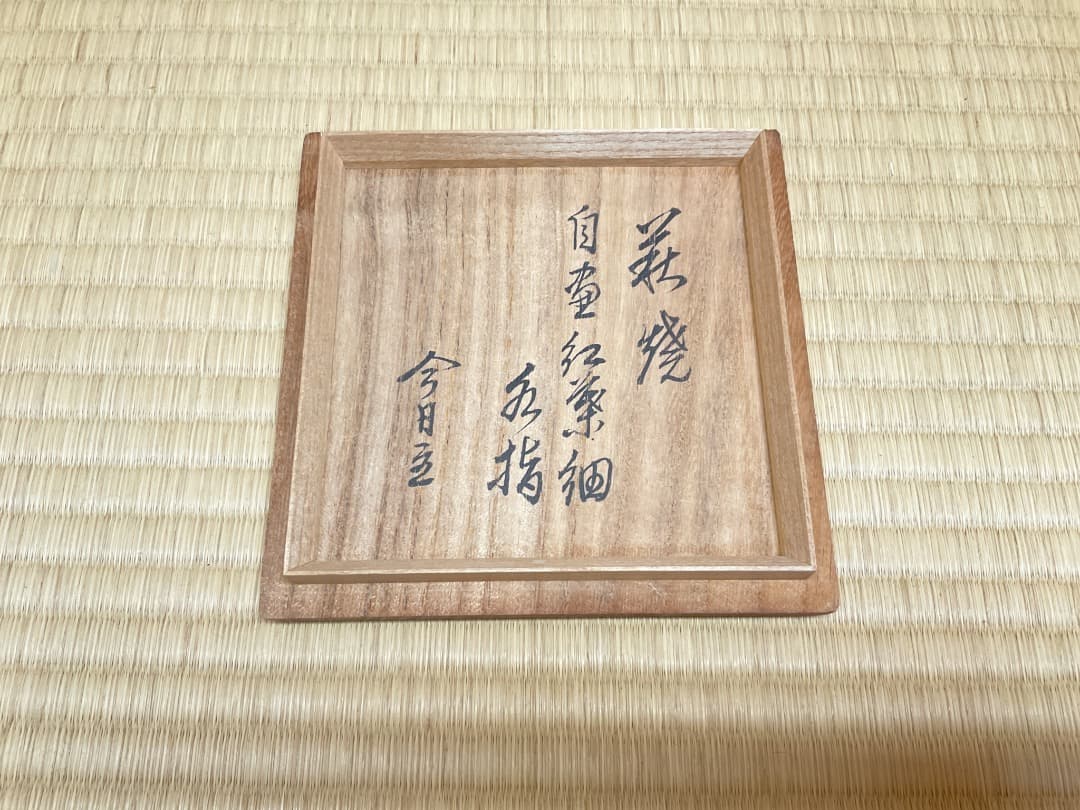 萩焼
自画紅葉細
水指
今日主